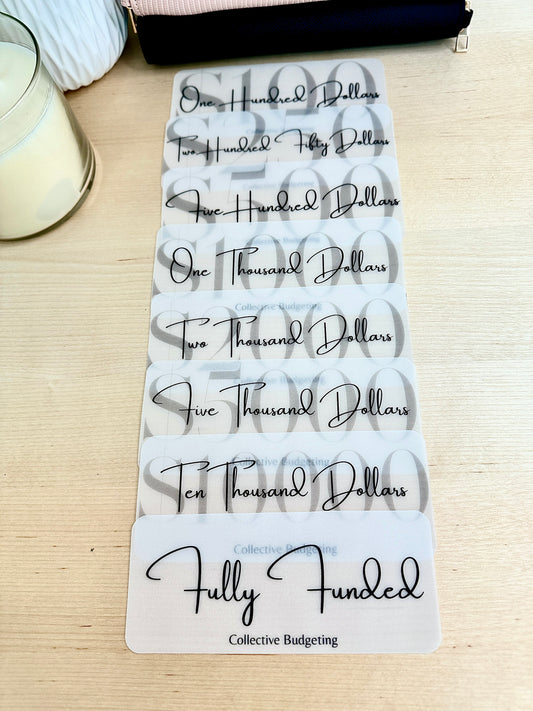 $100
One Hundred Dollars
$250
Two Hundred Fifty Dollars
$500
Five Hundred Dollars
Collective Budgeting
$1000
One Thousand Dollars
Collective Budgeting
$2000
Two Thousand Dollars
Collective Budgeting
$5000
Five Thousand Dollars
Collective Budgeting
$10000
Ten Thousand Dollars
Collective Budgeting
Fully Funded
Collective Budgeting